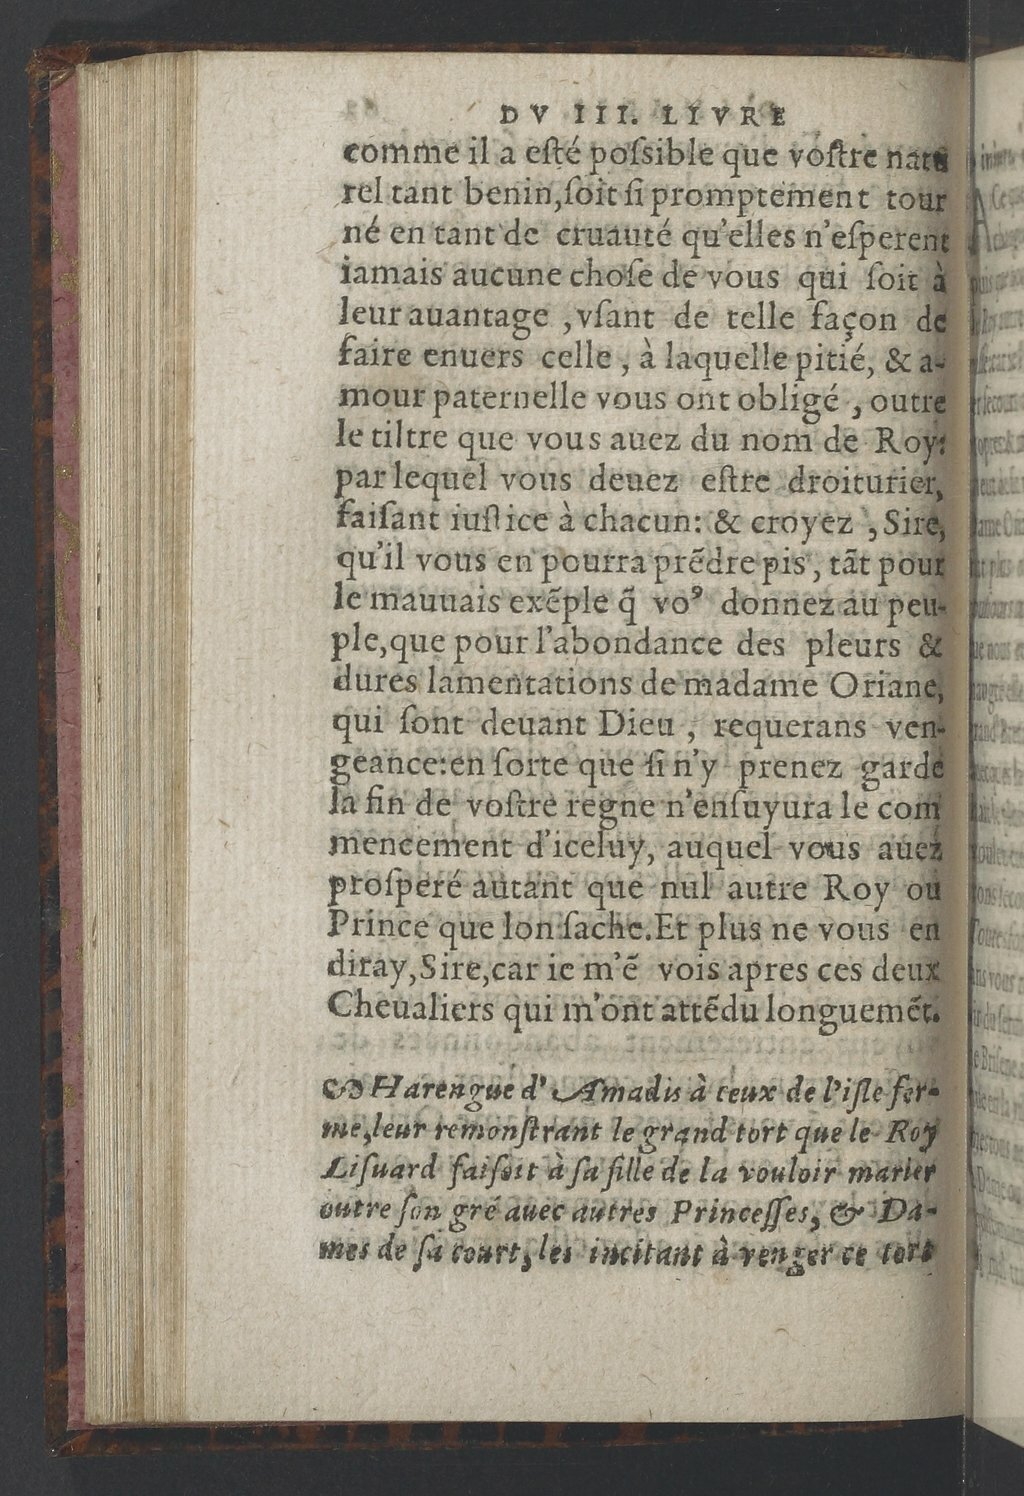 DV III. LIVRE
comme il a eſté poſsible que voſtre natu
rel tant benin, ſoit ſi promptement tour
né en tant de cruauté qu'elles n'eſperent
iamais aucune choſe de vous qui ſoit à
leur auantage , vſant de telle façon de
faire enuers celle , à laquelle pitié, & a-
mour paternelle vous ont obligé , outre
le tiltre que vous auez du nom de Roy:
par lequel vous deuez eſtre droiturier,
faiſant iuſtice à chacun: & croyez , Sire,
qu'il vous en pourra prẽdre pis , tãt pour
le mauuais exẽple q̃ voꝰ donnez au peu-
ple, que pour l'abondance des pleurs &
dures lamentations de madame Oriane,
qui ſont deuant Dieu , requerans ven-
geance: en ſorte que ſi n'y prenez garde
la fin de voſtre regne n'enſuyura le com
mencement d'iceluy, auquel vous auez
proſperé autant que nul autre Roy ou
Prince que lon ſache. Et plus ne vous en
diray, Sire, car ie m'ẽ vois apres ces deux
Cheualiers qui m'ont attẽdu longuemẽt.
Harengue d'Amadis à ceux de l'iſle fer-
me, leur remonſtrant le grand tort que le Roy
Liſuard faiſoit à ſa fille de la vouloir marier
outre ſon gré auec autres Princeſſes, & Da-
mes de ſa court, les incitant à venger ce tort